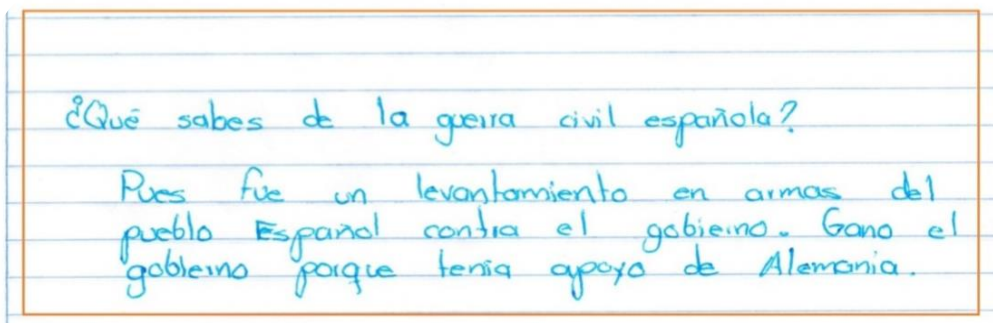 ¿Qué sabes de la guerra civil española?
Pues fue un levantamiento en armas del
pueblo Español contra el gobierno. Gano el
gobierno porque tenia apoyo de Alemania.